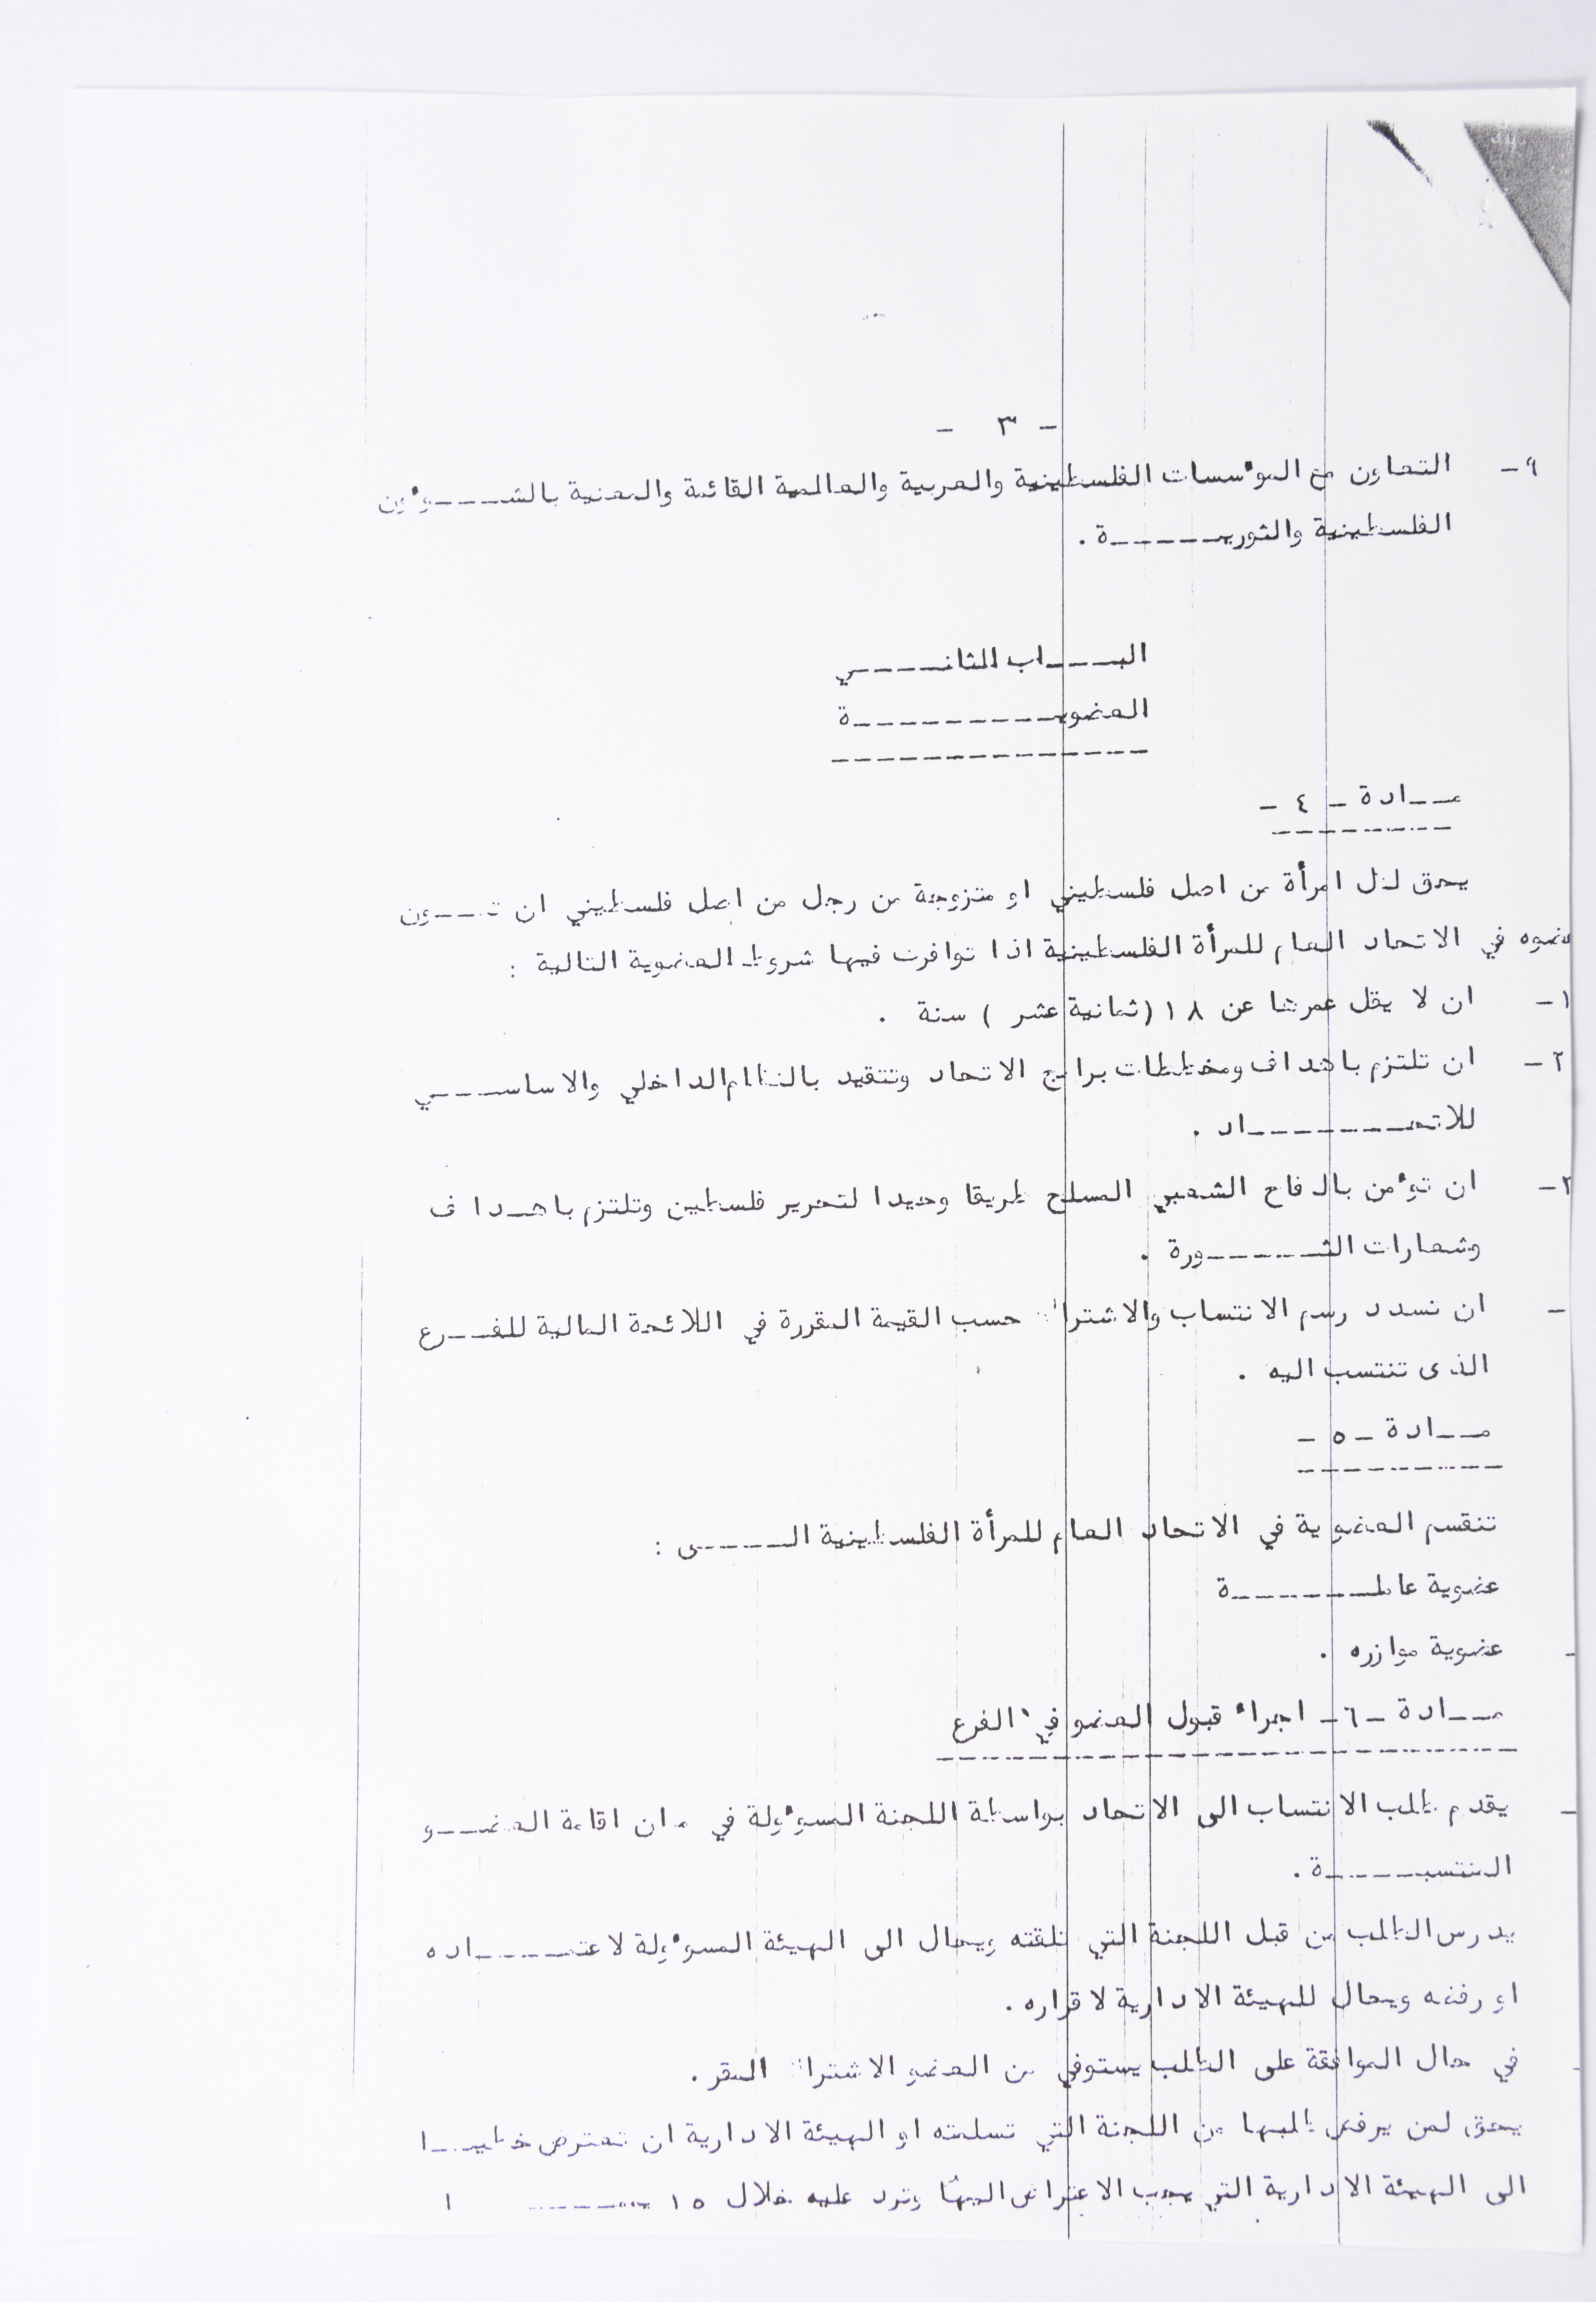 - ٣ -
٩- التعاون مع المؤسسات الفلسطينية والعربية والعالمية القائمة والمعنية بالشــــؤون
الفلسطينية والثوريــــــة .
البــــاب الثانــــي
العضويــــــــــة
مــادة - ٤ -
يحق لكل امرأة من اصل فلسطيني او متزوجة من رجل من اصل فلسطيني ان تــكون
عضوه في الاتحاد العام للمرأة الفلسطينية اذا توافرت فيها شروط العضوية التالية :
١- ان لا يقل عمرها عن ١٨ (ثمانية عشر ) سنة .
٢- ان تلتزم باهداف ومخططات برامج الاتحاد وتتقيد بالنظام الداخلي والاساســـي
للاتحــــــــاد .
٣- ان تؤمن بالكفاح الشعبي المسلح طريقا وحيدا لتحرير فلسطين وتلتزم باهــداف
وشعارات الثــــــورة .
- ان تسدد رسم الانتساب والاشتراك حسب القيمة المقررة في اللائحة المالية للفــرع
الذى تنتسب اليه .
مــادة - ٥ -
تنقسم العضوية في الاتحاد العام للمرأة الفلسطينية الـــــى :
عضوية عاملـــــــة
- عضوية موازره .
مــادة - ٦ - اجراء قبول العضو في الفرع
- يقدم طلب الانتساب الى الاتحاد بواسطة اللجنة المسؤولة في مكان اقامة العضــو
المنتسبـــــة .
يدرس الطلب من قبل اللجنة التي تلقته ويحال الى الهيئة المسؤولة لاعتمــــاده
او رفضه ويحال للهيئة الادارية لاقراره .
- في حال الموافقة على الطلب يستوفي من العضو الاشتراك المقر .
يحق لمن يرفض طلبها من اللجنة التي تسلمته او الهيئة الادارية ان تعترض خطيــا
الى الهيئة الادارية التي يجب الاعتراض اليها وترد عليه خلال ١٥